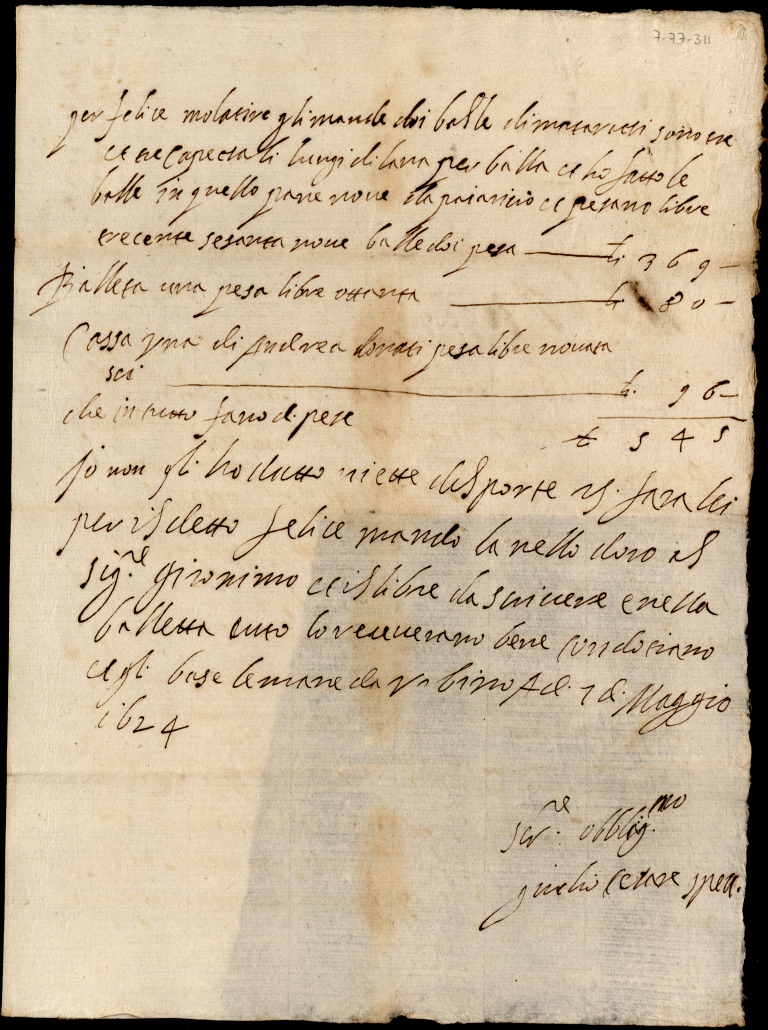 7-77-311
per felice molatire gli mando doi balle di matarazi sono tre
et ne capeta li lungi di lana per balla et ho fatto le
balle in quello pare nove da paiaricio et pesano libre
trecente sesanta nove balle doi pesa — lb 369 –
Balleta una pesa libre ottanta — lb 80 –
Cassa una di Andrea donati pesa libre novata
sei — lb. 96 –
che in tutto sano d. pese
lb 545
Io non gli ho datto niette del porte il. fara lei
per il detto felice mando la nello doro al
sig.re Gironimo et il libre da scrivere e nella
balletta tuto lo receverano bene condotiano
et gli base le mane da Urbino Adi. 7 di. Maggio
1624
Ser.re obblig.mo
Giulio Cesare